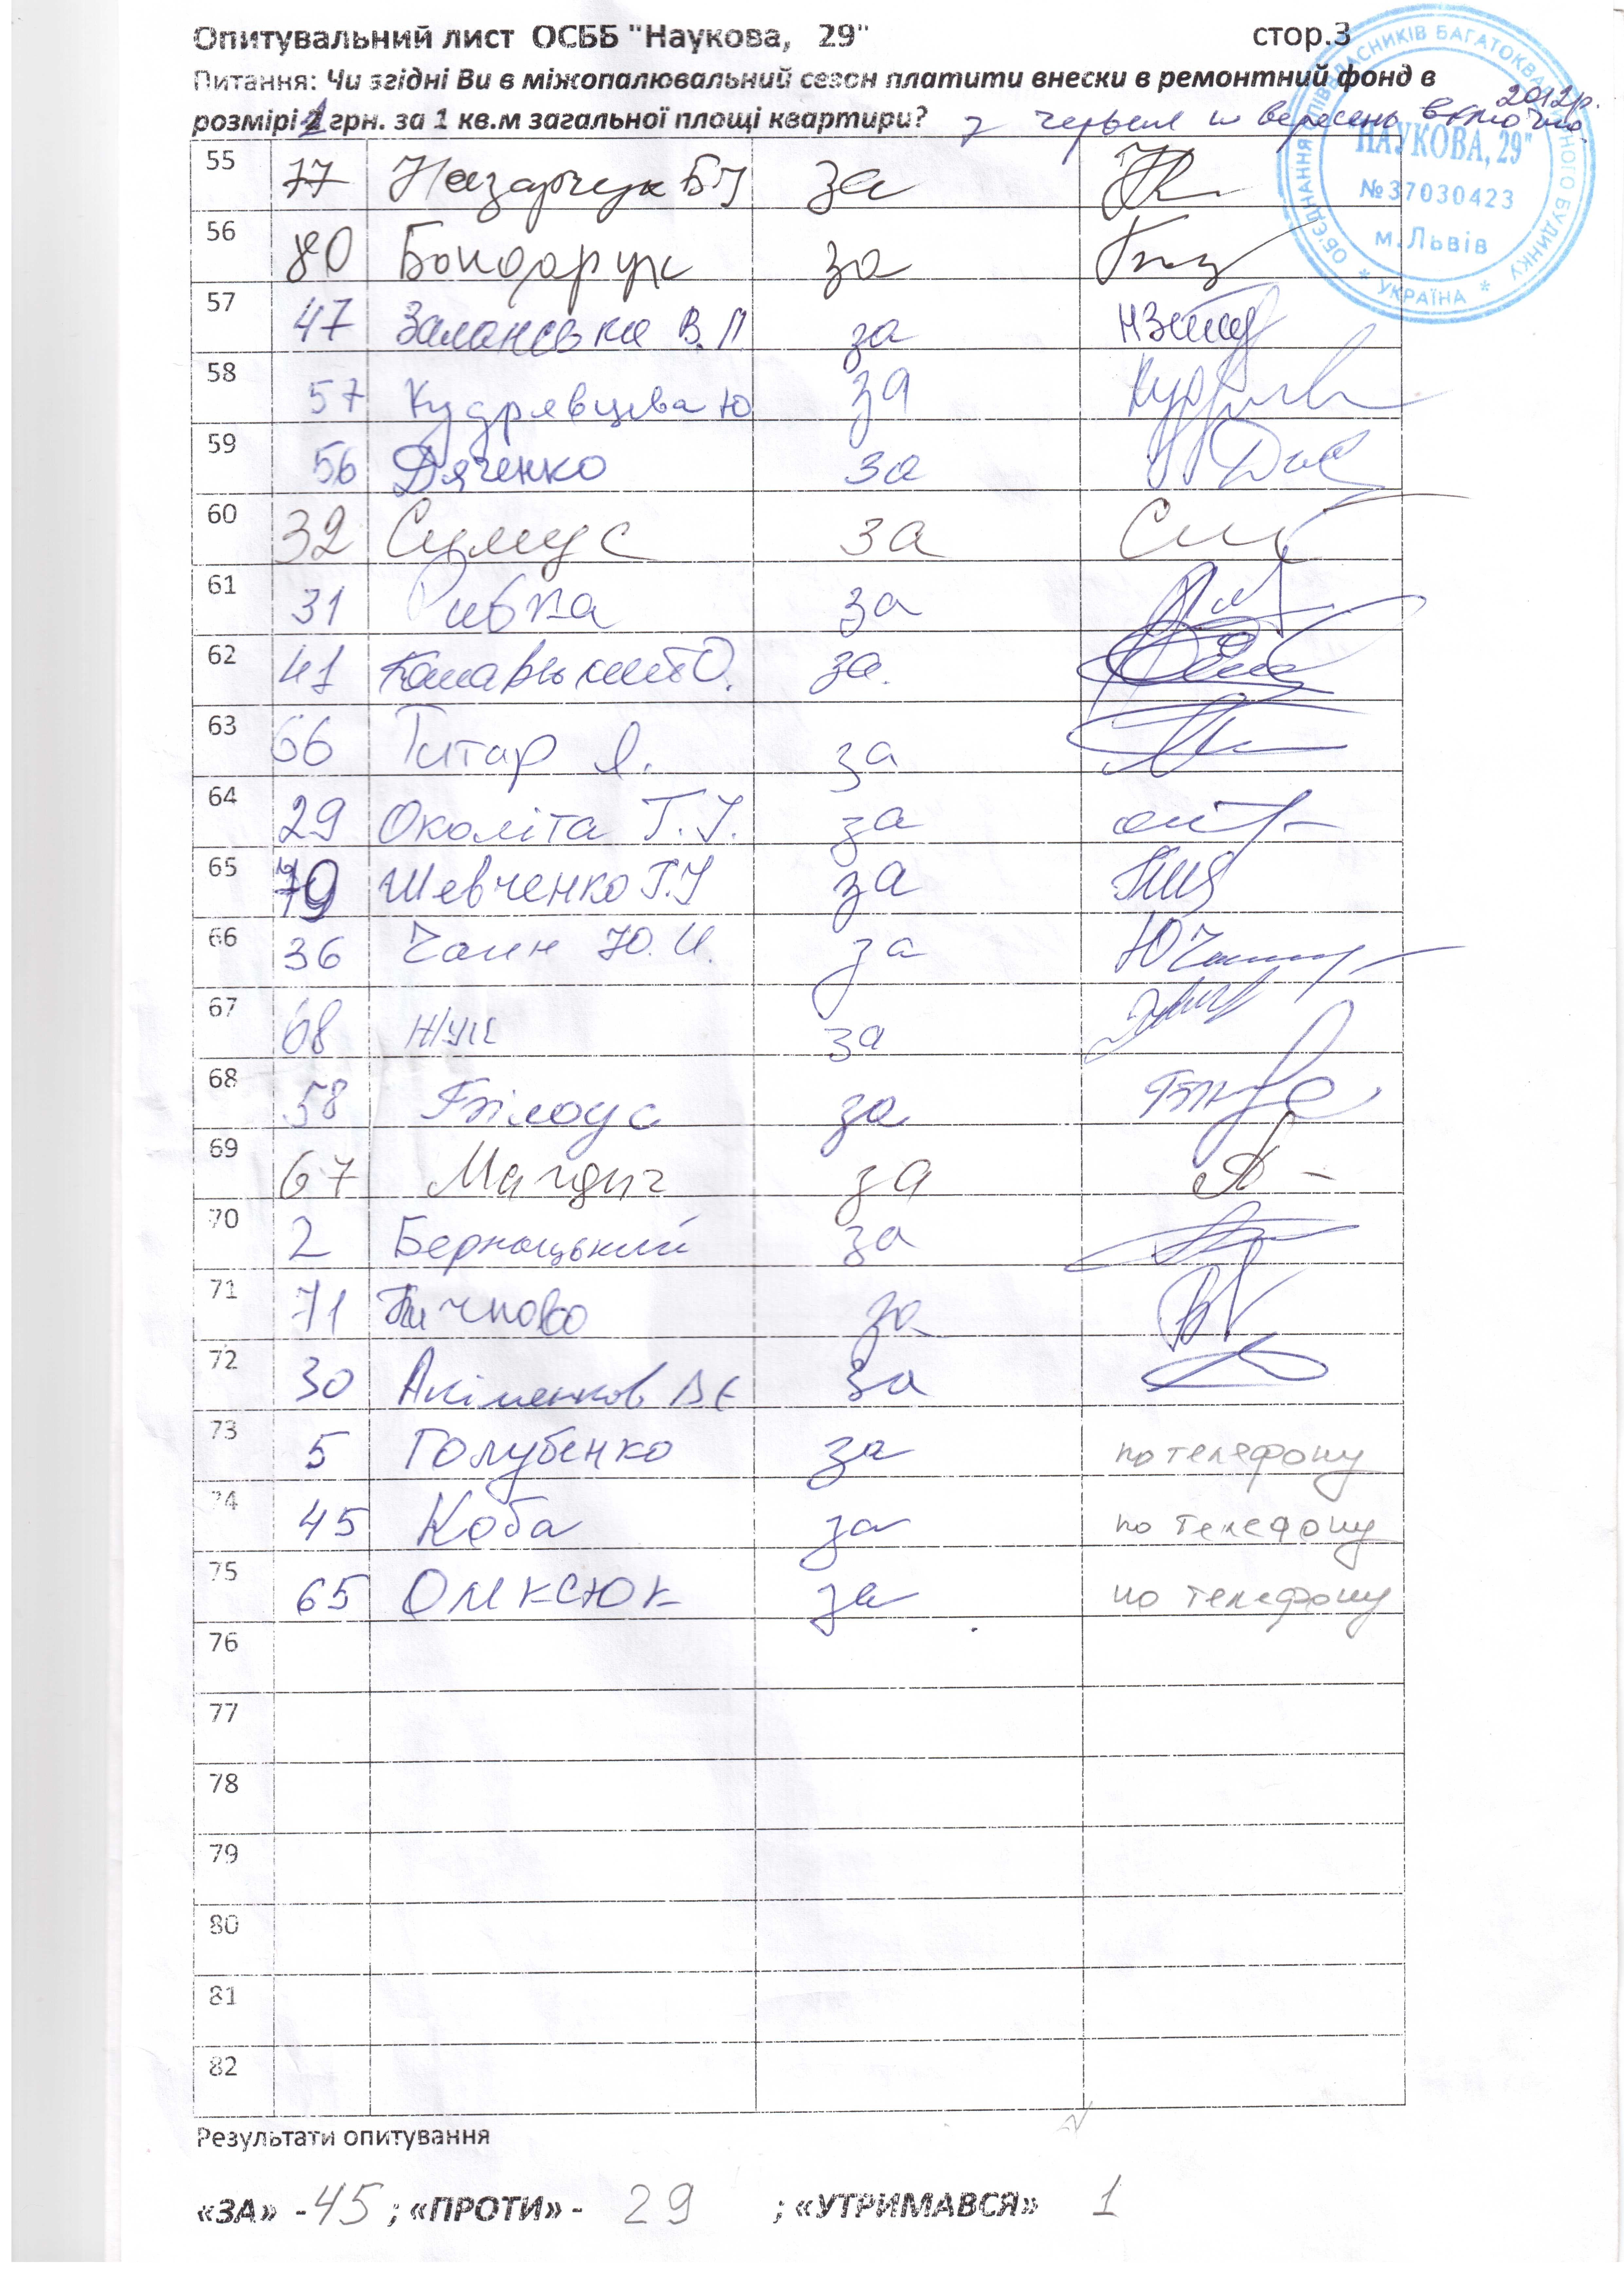 Опитувальний лист ОСББ "Наукова, 29" стор.3
Питання: Чи згідні Ви в міжопалювальний сезон платити внески в ремонтний фонд в
розмірі 1 грн. за 1 кв.м загальної площі квартири? з червня по вересень включно 2012р.
ОБ'ЄДНАННЯ СПІВВЛАСНИКІВ БАГАТОКВАРТИРНОГО БУДИНКУ * УКРАЇНА *
"НАУКОВА, 29"
№37030423
м.Львів
55 77 Назарчук Б І за
56 80 Бондарук за
57 47 В.П за
58 57 Кудрявцева Ю за
59 56 Дяченко за
60 32 за
61 31 Рибка за
62 41 О. за.
63 66 Титар Я. за
64 29 Околіта Г.І. за
65 79 Шевченко Г.І за
66 36 Чаин Ю.И. за
67 68 Жук за
68 58 Білоус за
69 67 за
70 2 Бернацький за
71 71 за
72 30 Акіменков В Є за
73 5 Голубенко за по телефону
74 45 Коба за по телефону
75 65 Олексюк за по телефону
76
77
78
79
80
81
82
Результати опитування
«ЗА» - 45 ; «ПРОТИ» - 29 ; «УТРИМАВСЯ» 1